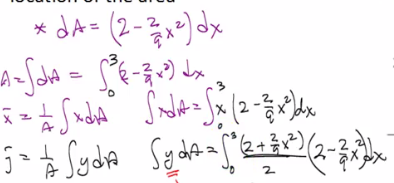 location of the area
* dA = (2 - 2/9 x²) dx
A = ∫dA = ∫₀³ (2 - 2/9 x²) dx
x̄ = 1/A ∫xdA ∫xdA = ∫₀³ x (2 - 2/9 x²) dx
ȳ = 1/A ∫ydA ∫ydA = ∫₀³ (2 + 2/9 x²)/2 (2 - 2/9 x²) dx